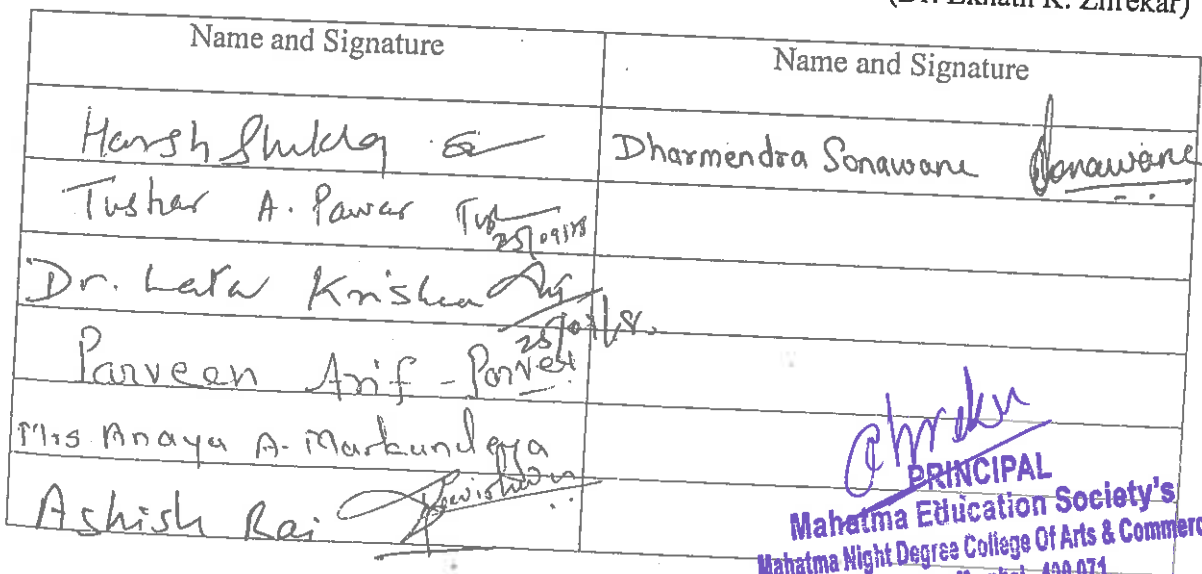 (Dr. Eknath R. Zhrekar)
Name and Signature
Name and Signature
Harsh Shukla
Dharmendra Sonawane Sonawane
Tushar A. Pawar
25/09/18
Dr. Lata Krishna
25/09/18.
Parveen Arif - Parveen
Mrs. Anaya A. Markundeya
Ashish Rai
PRINCIPAL
Mahatma Education Society's
Mahatma Night Degree College Of Arts & Commerc
400 071